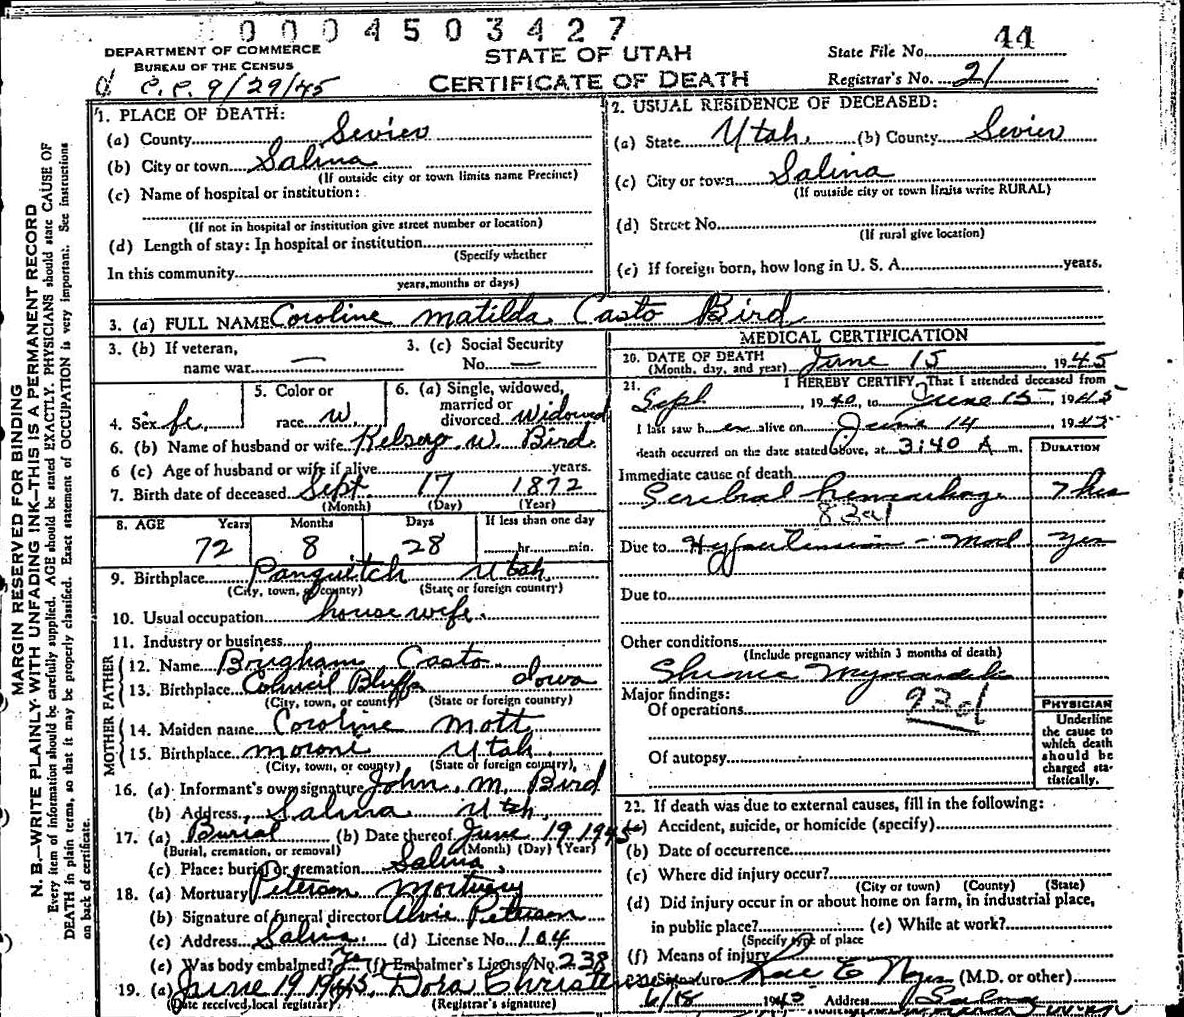 0004503427
DEPARTMENT OF COMMERCE
BUREAU OF THE CENSUS
STATE OF UTAH
CERTIFICATE OF DEATH
State File No. 44
Registrar's No. 21
C.C. 9/29/45
1. PLACE OF DEATH:
(a) County Sevier
(b) City or town Salina
(If outside city or town limits name Precinct)
(c) Name of hospital or institution:
(If not in hospital or institution give street number or location)
(d) Length of stay: In hospital or institution
(Specify whether
In this community
years, months or days)
2. USUAL RESIDENCE OF DECEASED:
(a) State Utah (b) County Sevier
(c) City or town Salina
(If outside city or town limits write RURAL)
(d) Street No.
(If rural give location)
(e) If foreign born, how long in U. S. A. years.
3. (a) FULL NAME Coroline Matilda Casto Bird
3. (b) If veteran,
name war —
3. (c) Social Security
No. —
4. Sex fe.
5. Color or
race w.
6. (a) Single, widowed,
married or
divorced widowed
6. (b) Name of husband or wife Kelserg W. Bird
6 (c) Age of husband or wife if alive years.
7. Birth date of deceased Sept. 17 1872
(Month) (Day) (Year)
8. AGE Years Months Days If less than one day
72 8 28 hr. min.
9. Birthplace Panguitch Utah
(City, town, or county) (State or foreign country)
10. Usual occupation housewife.
11. Industry or business
FATHER
12. Name Brigham Casto
13. Birthplace Council Bluffs Iowa
(City, town, or county) (State or foreign country)
MOTHER
14. Maiden name Coroline Mott
15. Birthplace Moroni Utah
(City, town, or county) (State of foreign country)
16. (a) Informant's own signature John M. Bird
(b) Address, Salina Utah.
17. (a) Burial (b) Date thereof June 19 1945
(Burial, cremation, or removal) (Month) (Day) (Year)
(c) Place: burial or cremation Salina.
18. (a) Mortuary Peterson Mortuary
(b) Signature of funeral director Alvie Peterson
(c) Address Salina. (d) License No. 104
(e) Was body embalmed? Yes (f) Embalmer's License No. 238
19. (a) June 19 1945, Dora Christensen
(Date received, local registrar) (Registrar's signature)
MEDICAL CERTIFICATION
20. DATE OF DEATH
(Month, day, and year) June 15 1945
21. I HEREBY CERTIFY, That I attended deceased from
Seph 1940, to June 15, 1945
I last saw her alive on June 14 1945
death occurred on the date stated above, at 3:40 A m.
DURATION
Immediate cause of death
Cerebral hemorrhage 7 hrs
83a1
Due to Hypertension - Mod yrs
Due to
Other conditions
(Include pregnancy within 3 months of death)
Major findings:
Of operations 93d
Of autopsy
PHYSICIAN
Underline
the cause to
which death
should be
charged sta-
tistically.
22. If death was due to external causes, fill in the following:
(a) Accident, suicide, or homicide (specify)
(b) Date of occurrence
(c) Where did injury occur?
(City or town) (County) (State)
(d) Did injury occur in or about home on farm, in industrial place,
in public place? (e) While at work?
(Specify type of place
(f) Means of injury
23. Signature Rae E Noyes (M.D. or other)
6/18 1945 Address Salina
MARGIN RESERVED FOR BINDING
N. B.—WRITE PLAINLY WITH UNFADING INK—THIS IS A PERMANENT RECORD
Every item of information should be carefully supplied. AGE should be stated EXACTLY. PHYSICIANS should state CAUSE OF
DEATH in plain terms, so that it may be properly classified. Exact statement of OCCUPATION is very important. See instructions
on back of certificate.